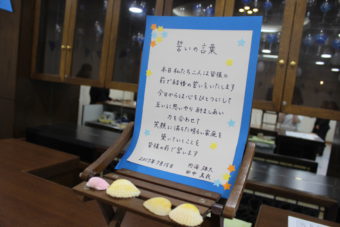 誓いの言葉
本日私たち二人は皆様の
前で結婚の誓いをいたします
今日から心をひとつにして
互いに思いやり 励まし合い
力を合わせて
笑顔に満ちた明るい家庭を
築いていくことを
皆様の前で誓います
2017年7月15日